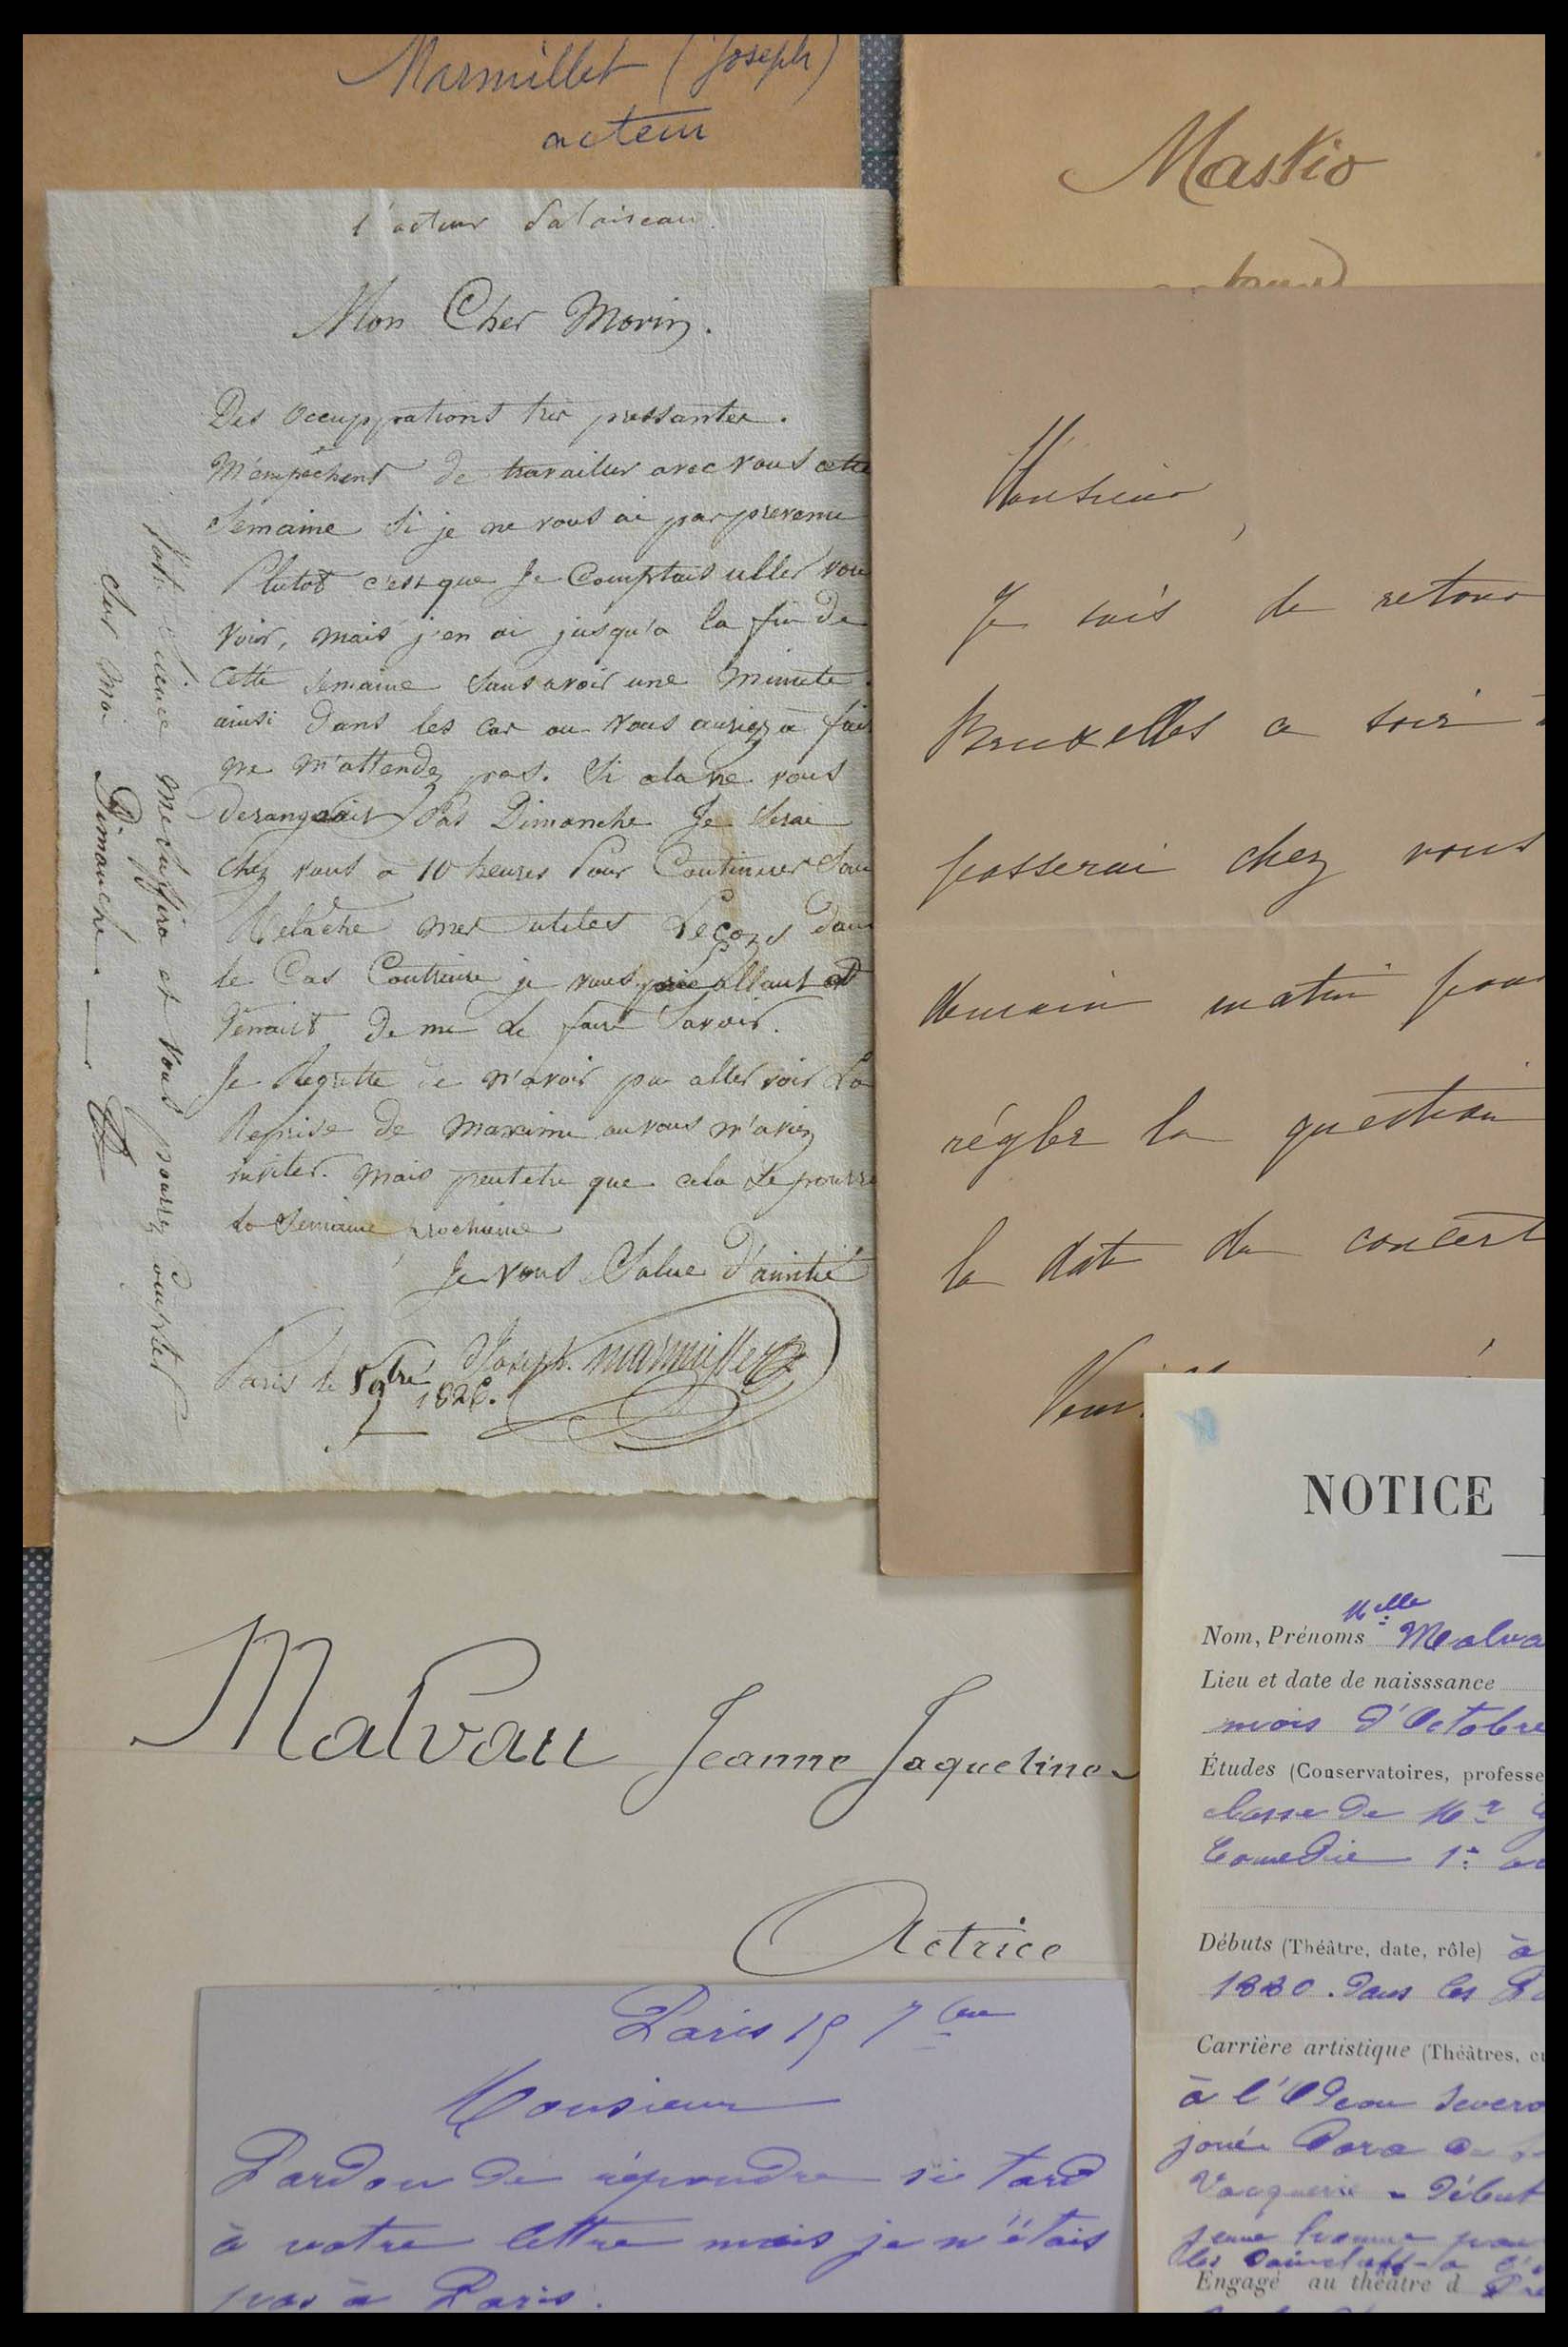 Marmillet (Joseph)
acteur
l'acteur
Mon Cher Morin.
Des Occupprations très pressantes.
M'empêchent de travailler avec vous cette
Semaine Si je ne vous ai pas prevenu
Plutot c'est que Je Comptais aller vous
Voir, mais j'en ai jusqu'a la fin de
Cette Semaine Sans avoir une Minute.
ainsi Dans les cas ou vous auriez a fair
ne M'attendez pas. Si cela ne vous
Derangeait Pas Dimanche Je Serai
Chez vous a 10 heures Pour Continuer Sans
Relache mes utiles Leçons dans
le Cas Contraire je vous prie
De me Le faire Savoir.
Je Regrette de n'avoir pu aller voir La
Reprise de Maxime ou vous m'aviez
inviter. Mais peutetre que cela Se pourra
La Semaine prochaine
Je vous Salue D'amitié
Joseph. Marmillet
Paris le 5 9bre 1826.
Votre Silence me Suffira et Vous pourrez Compter
Sur Moi Dimanche.
Maskio
Monsieur,
Je suis de retour
Bruxelles ce soir
passerai chez vous
demain matin pour
régler la question
la date du concert
NOTICE
Nom, Prénoms Melle Malva
Lieu et date de naisssance
mois d'Octobre
Études (Conservatoires, professe
classe de Mr
Comedie 1er
Débuts (Théâtre, date, rôle) à
1880. Dans les
Carrière artistique (Théâtres,
à l'Odeon
joué
Vacquerie - Début
jeune homme
les
Engagé au théâtre d
Malvau Jeanne Jaqueline
Actrice
Paris 15 7bre
Monsieur
Pardon de répondre si tard
à votre lettre mais je n'étais
pas à Paris.